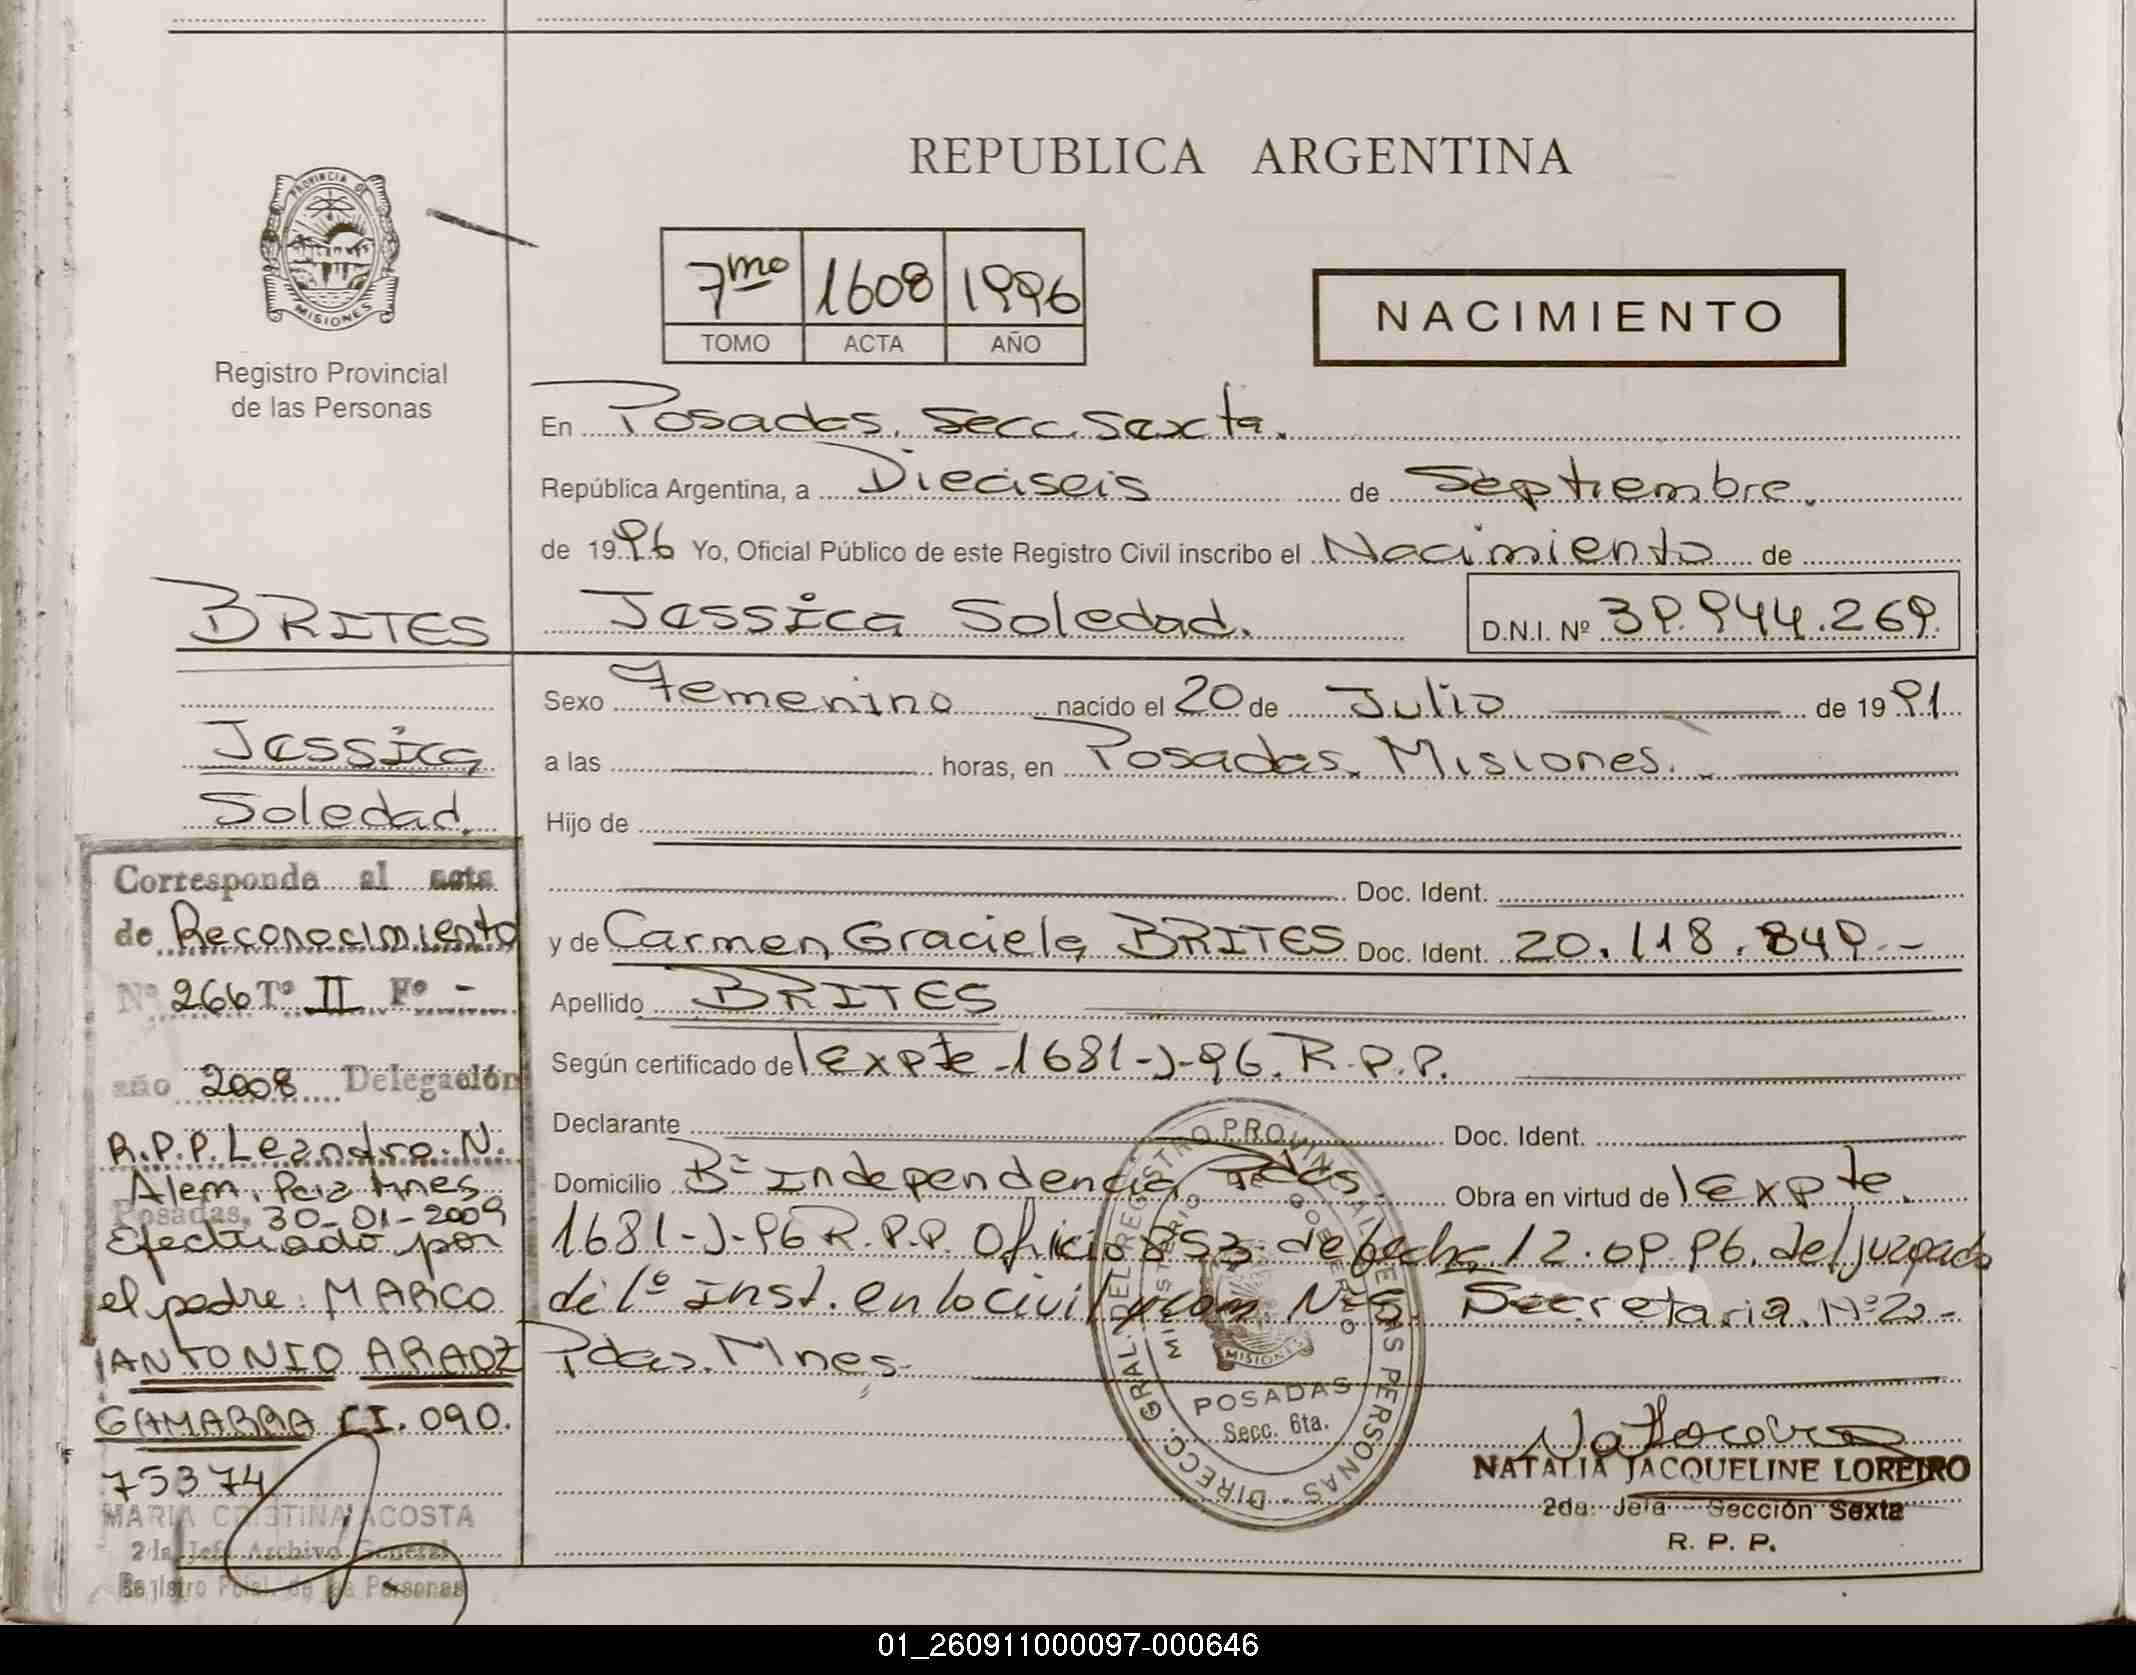 REPUBLICA ARGENTINA
PROVINCIA DE
MISIONES
Registro Provincial
de las Personas
7mo 1608 1996
TOMO ACTA AÑO
NACIMIENTO
En Posadas. Secc. Sexta.
República Argentina, a Dieciseis de Septiembre.
de 1996 Yo, Oficial Público de este Registro Civil inscribo el Nacimiento de
Jessica Soledad. D.N.I. Nº 39.944.269.
Sexo Femenino nacido el 20 de Julio de 1991
a las horas, en Posadas. Misiones.
Hijo de
Doc. Ident.
y de Carmen Graciela BRITES Doc. Ident. 20.118.849.-
Apellido BRITES
Según certificado de Expte-1681-J-96. R.P.P.
Declarante Doc. Ident.
Domicilio Bº Independencia Pdas. Obra en virtud de Expte.
1681-J-96 R.P.P. Oficio 853. de fecha 12.09.96. del juzgado
de 1º inst. en lo civil y com. Secretaria. Nº 2.-
Pdas. Mnes.
BRITES
Jessica
Soledad.
Corresponde al acta
de Reconocimiento
Nº 266 Tº II Fº -
año 2008 Delegación
R.P.P. Leandro. N.
Alem. Pcia Mnes
Posadas, 30-01-2009
Efectuado por
el padre: MARCO
ANTONIO ARAOZ
GAMARRA CI. 090.
75374
MARIA CRISTINA ACOSTA
2da Jefe Archivo General
Registro Pcial. de las Personas
DIRECC. GRAL. DEL REGISTRO PROVINCIAL DE LAS PERSONAS
MINISTERIO DE GOBIERNO
MISIONES
POSADAS
Secc. 6ta.
NATALIA JACQUELINE LOREIRO
2da. Jefa Sección Sexta
R. P. P.
01_260911000097-000646